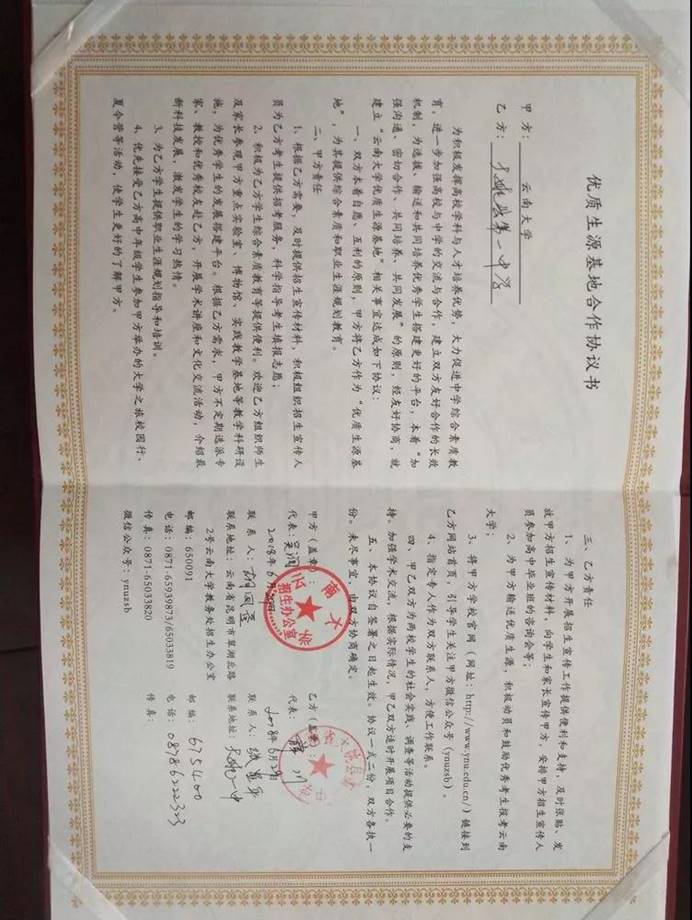 优质生源基地合作协议书
甲 方： 云南大学
乙 方： 大姚县第一中学
为积极发挥高校学科与人才培养优势，大力促进中学综合素质教
育，进一步加强高校与中学的交流与合作，建立双方友好合作的长效
机制，为选拔、输送和共同培养优秀学生搭建更好的平台，本着“加
强沟通、密切合作、共同培养、共同发展”的原则，经友好协商，就
建立“云南大学优质生源基地”相关事宜达成如下协议：
一、双方本着自愿、互利的原则，甲方将乙方作为“优质生源基
地”，为其提供综合素质和职业生涯规划教育。
二、甲方责任
1、根据乙方需要，及时提供招生宣传材料，积极组织招生宣传人
员为乙方考生提供招考服务，科学指导考生填报志愿；
2、积极为乙方学生综合素质教育等提供便利。欢迎乙方组织师生
及家长参观甲方重点实验室、博物馆、实践教学基地等教学科研设
施，为优秀学生的发展搭建平台。根据乙方需求，甲方不定期选派专
家、教授和优秀校友赴乙方，开展学术讲座和文化交流活动，介绍最
新科技发展，激发学生的学习热情。
3、为乙方学生提供职业生涯规划指导和培训。
4、优先接受乙方高中年级学生参加甲方举办的大学之旅校园行、
夏令营等活动，使学生更好的了解甲方。
三、乙方责任
1、为甲方开展招生宣传工作提供便利和支持，及时张贴、发
放甲方招生宣传材料，向学生和家长宣传甲方，安排甲方招生宣传人
员参加高中毕业班的咨询会等；
2、为甲方输送优质生源，积极动员和鼓励优秀考生报考云南
大学；
3、将甲方学校官网（网址：http://www.ynu.edu.cn/）链接到
乙方网站首页，引导学生关注甲方微信公众号（ynuzsb）。
4、指定专人作为双方联系人，方便工作联系。
四、甲乙双方为两校学生的社会实践、调查等活动提供必要的支
持。加强学术交流，根据实际情况，甲乙双方适时开展项目合作。
五、本协议自签署之日起生效。协议一式二份，双方各执一
份。未尽事宜，由双方协商确定。
甲方（盖章）： 乙方（盖章）：
代表： 代表：
2018年6月 2018年6月29日
联 系 人： 联 系 人：
联系地址：云南省昆明市翠湖北路 联系地址：大姚一中
2号云南大学教务处招生办公室
邮 编：650091 邮 编：675400
电 话：0871-65939873/65033819 电 话：08786222323
传 真：0871-65033820 传 真：
微信公众号：ynuzsb
招生办公室